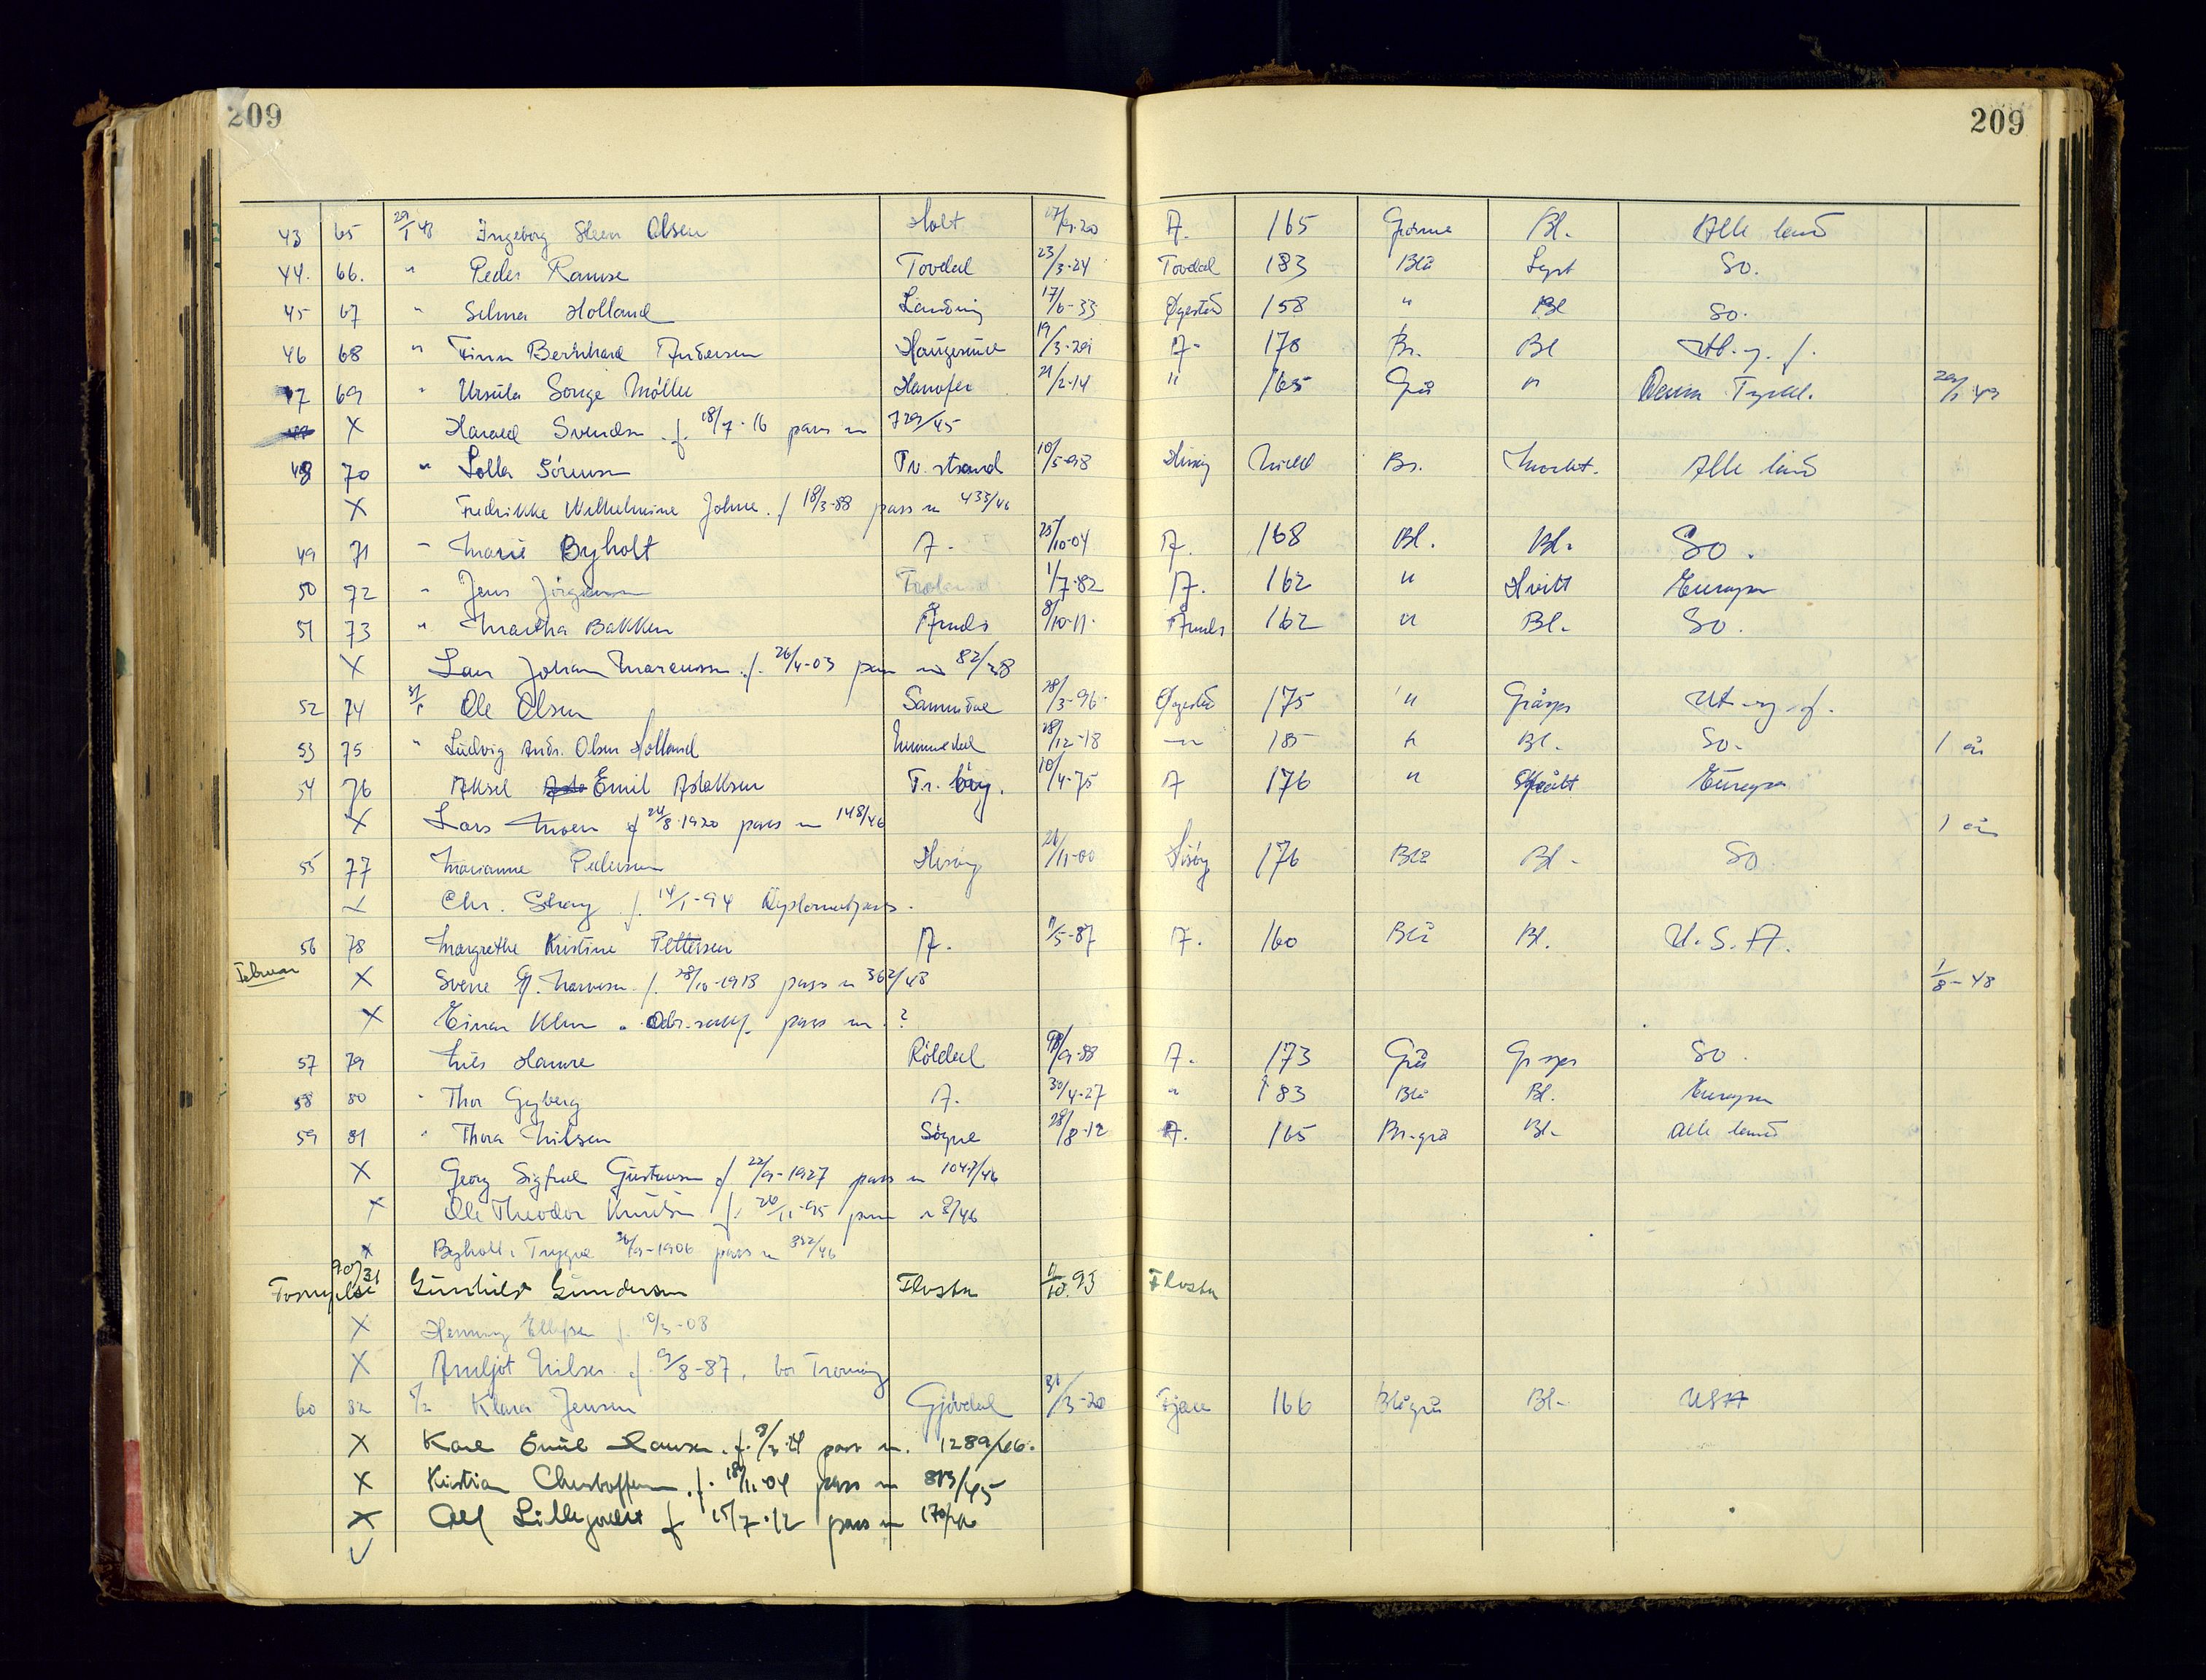 209 209
43 65 29/1 48 Ingeborg Steen Olsen Holt 17/9-20 A. 165 Grønne Bl. Alle land
44. 66. " Peder Ramse Tovdal 23/3-24 Tovdal 183 Blå Lyst So.
45 67 " Selma Holland Landvig 17/6-33 Øyestad 158 " Bl So.
46 68 " Finn Bernhard Andersen Haugesund 19/3-29 A- 178 Br. Bl Ut. y. f.
47 69 " Ursula Sonye Møller Hanofer 21/2-14 " 165 Grå " Danm Tyskl. 29/1 49
X Harald Svendsen f. 18/7-16 pass nr 729/45
48 70 " Lolla Sørensen Tv. strand 10/5-98 Hisøy Midd Br. Mørkt. Alle land
X Fredrikke Wilhelmine Johne. f 18/3-88 pass nr 433/46
49 71 " Marie Byholt A. 25/10-04 A. 168 Bl. Bl. So.
50 72 " Jens Jörgensen 1/7-82 A. 162 " Hvitt Europa
51 73 " Martha Bakken Åmli 8/10-11. Åmli 162 " Bl- So.
X Lars Johan Marcussen f. 26/4-03 pass nr 82/38
52 74 31/1 Ole Olsen Sannidal 28/3-96 Øyestad 175 " Gråspr Ut. y. f.
53 75 " Ludvig Andr. Olsen Holland 28/12-18 -"- 185 " Bl. So- 1 år
54 76 Aksel Emil Aslaksen Tr. berg. 10/4-75 A 176 " Europa
X Lars Moen f 24/8-1920 pass nr 148/46 1 år
55 77 Marianne Pedersen Hisøy 26/11-00 Hisøy 176 Blå Bl- So
Chr. f. 14/1-94 Diplomatpass.
56 78 Margrethe Kristine Pettersen A. 9/5-87 A. 160 Blå Bl. U.S.A.
Februar X Sverre f. 28/10-1913 pass nr 362/48 1/8-48
X Einar pass nr. ?
57 79 Nils Hamre Röldal 9/9-88 A. 173 Grå Gr spr So.
58 80 " Thor Gyberg A. 30/4-27 " 183 Blå Bl. Europa
59 81 " Thora Nilsen Søgne 28/8-12 A. 165 Br-grå Bl- Alle land
X Georg Sigfred Gustavsen f 22/9-1927 pass nr 1047/46
X Ole Theodor Knutsen f. 26/11-95 pass nr 8/46
X Byholt, Trygve 26/9-1906 pass nr 352/46
Fornyelse Gunhild Gundersen Flosta 9/10.93 Flosta
X Henning Ellefsen f. 10/3-08
X Arnljot Nilsen f. 9/8-87, bor Tromøy
60 82 2/2 Klara Jensen Gjövdal 31/3-20 Fjære 166 Blågrå Bl- USA
X Karl Emil Hansen. f. 8/3-21 pass nr. 1289/46.
X Kristian Christoffersen f. 18/11-04 pass nr 813/45
X Alf Lillejordet f 15/7-12 pass nr 170/46